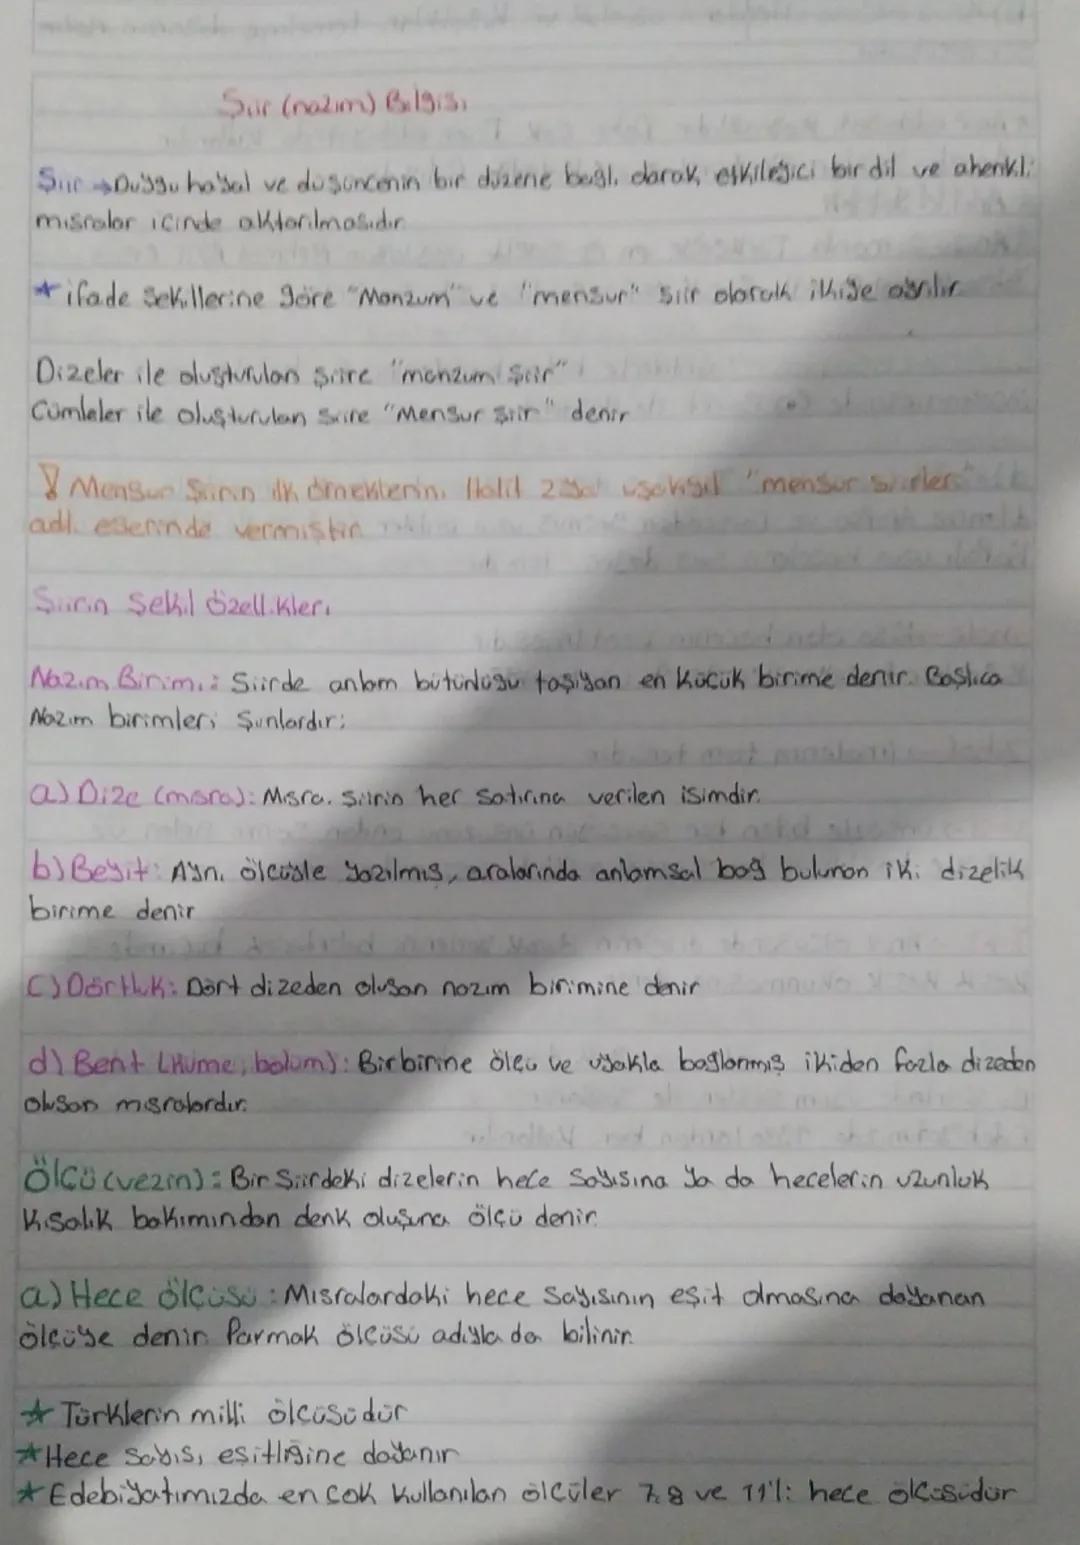 Şiir (nazım) Bilgisi
Şiir → Duygu hayal ve düşüncenin bir düzene bağlı olarak, etkileyici bir dil ve ahenkli
mısralar içinde aktarılmasıdır.
* ifade Şekillerine göre "Manzum" ve "mensur" şiir olarak ikiye ayrılır.
Dizeler ile oluşturulan şiire "manzum şiir"
Cümleler ile oluşturulan şiire "Mensur şiir" denir
Mensur Şiirin ilk örneklerini Halit Ziya Uşaklıgil "mensur şiirler"
adlı eserinde vermiştir.
Şiirin Şekil özellikleri
Nazım Birimi: Şiirde anlam bütünlüğü taşıyan en küçük birime denir. Başlıca
Nazım birimleri Şunlardır;
a) Dize (mısra): Mısra. Şiirin her satırına verilen isimdir.
b) Beyit: Aynı ölçüyle yazılmış, aralarında anlamsal bağ bulunan iki dizelik
birime denir
c) Dörtlük: Dört dizeden oluşan nazım birimine denir
d) Bent (Hüme, bölüm): Birbirine ölçü ve uyakla bağlanmış ikiden fazla dizeden
oluşan mısralardır.
Ölçü (vezin): Bir Şiirdeki dizelerin hece sayısına ya da hecelerin uzunluk
kısalık bakımından denk oluşuna ölçü denir.
a) Hece ölçüsü: Mısralardaki hece sayısının eşit olmasına dayanan
ölçüye denir. Parmak ölçüsü adıyla da bilinir.
* Türklerin milli ölçüsüdür
* Hece sayısı eşitliğine dayanır
* Edebiyatımızda en çok kullanılan ölçüler 7, 8 ve 11'li hece ölçüsüdür